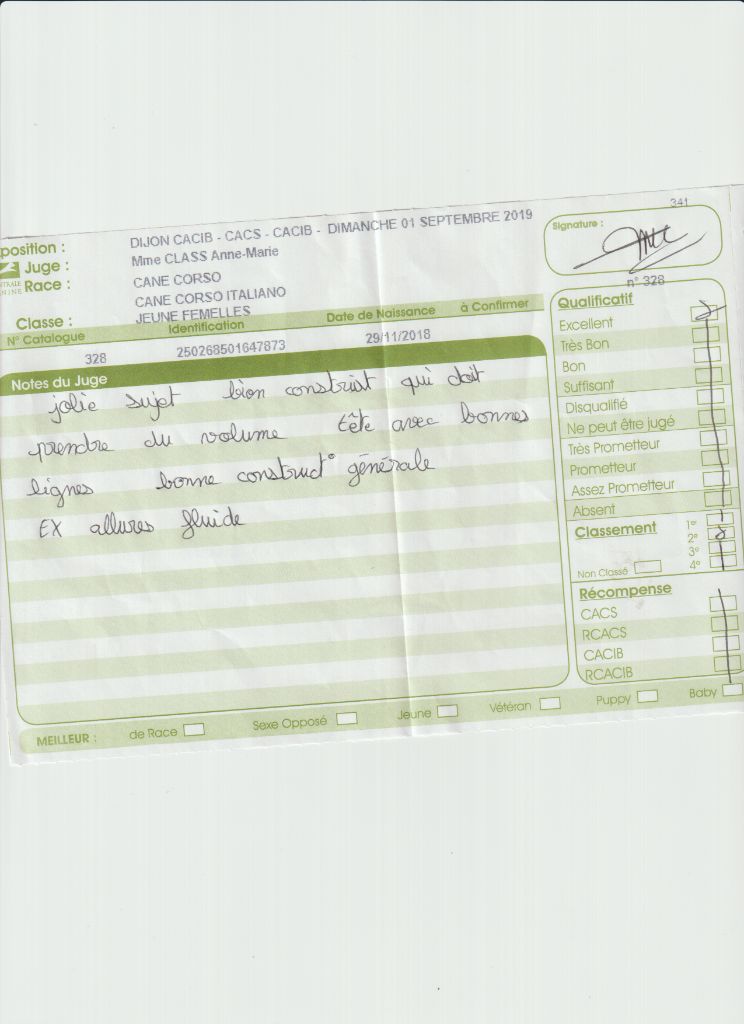 341
position :
DIJON CACIB - CACS - CACIB - DIMANCHE 01 SEPTEMBRE 2019
Signature :
Juge :
Mme CLASS Anne-Marie
Race :
CANE CORSO
CANE CORSO ITALIANO
n° 328
Classe :
JEUNE FEMELLES
N° Catalogue Identification Date de Naissance à Confirmer
328 250268501647873 29/11/2018
Notes du Juge
jolie sujet bien construit qui doit
prendre du volume tête avec bonnes
lignes bonne construct° générale
EX allures fluide
Qualificatif
Excellent
Très Bon
Bon
Suffisant
Disqualifié
Ne peut être jugé
Très Prometteur
Prometteur
Assez Prometteur
Absent
Classement
1er
2e
3e
4e
Non Classé
Récompense
CACS
RCACS
CACIB
RCACIB
MEILLEUR : de Race Sexe Opposé Jeune Vétéran Puppy Baby